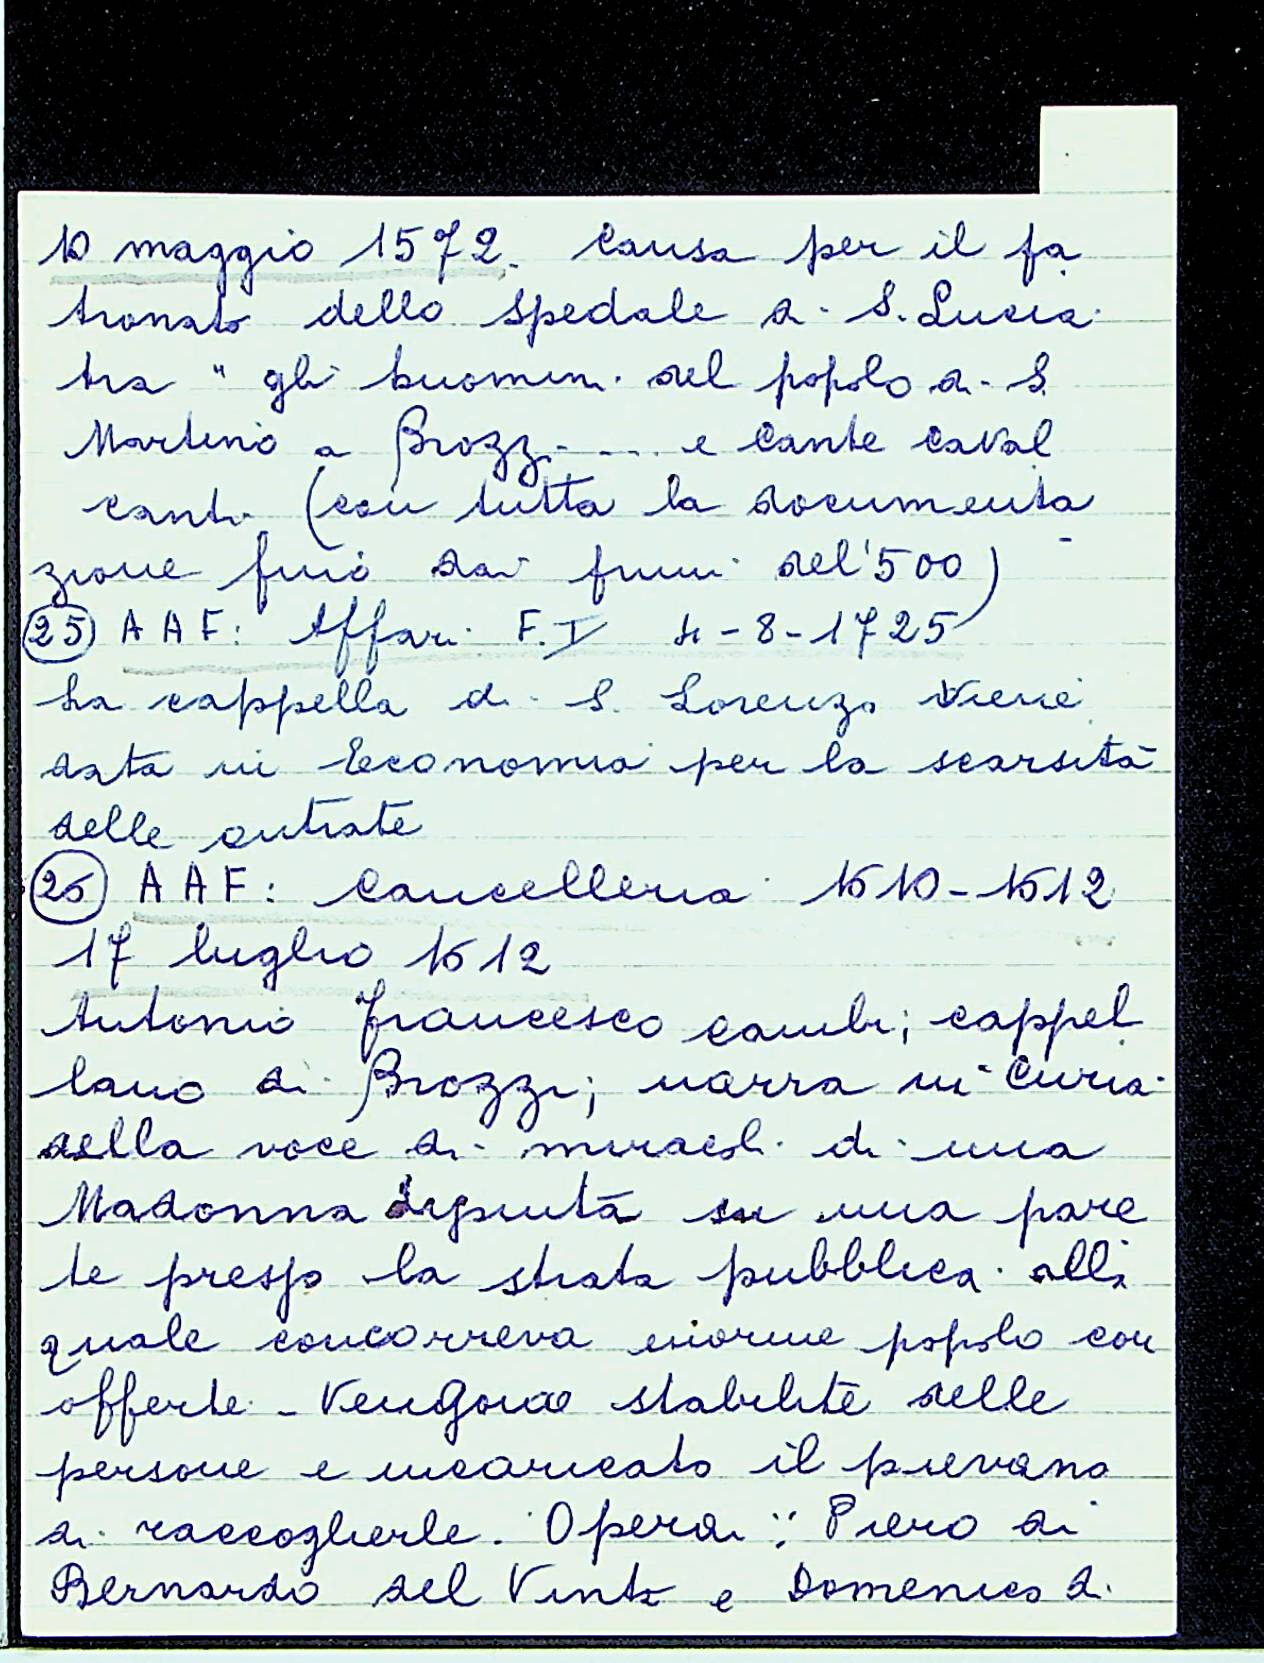 10 maggio 1572. Causa per il pa
tronato dello Spedale di S. Lucia
tra " gli buomini del popolo di S.
Martino a Brozzi .... e Cante Caval
canti (con tutta la documenta
zione fino dai primi del '500)
25) AAF: Affari F. I 4-8-1725
La cappella di S. Lorenzo viene
data in Economia per la scarsità
delle entrate
26) AAF: Cancelleria 1610-1612
17 luglio 1612
Antonio Francesco Cambi; cappel
lano di Brozzi; narra in Curia
della voce di miracoli di una
Madonna dipinta su una pare
te presso la strata pubblica alla
quale concorreva enorme popolo con
offerte - Vengono stabilite delle
persone e incaricato il pievano
di raccoglierle. Operai: Piero di
Bernardo del Vinta e Domenico di